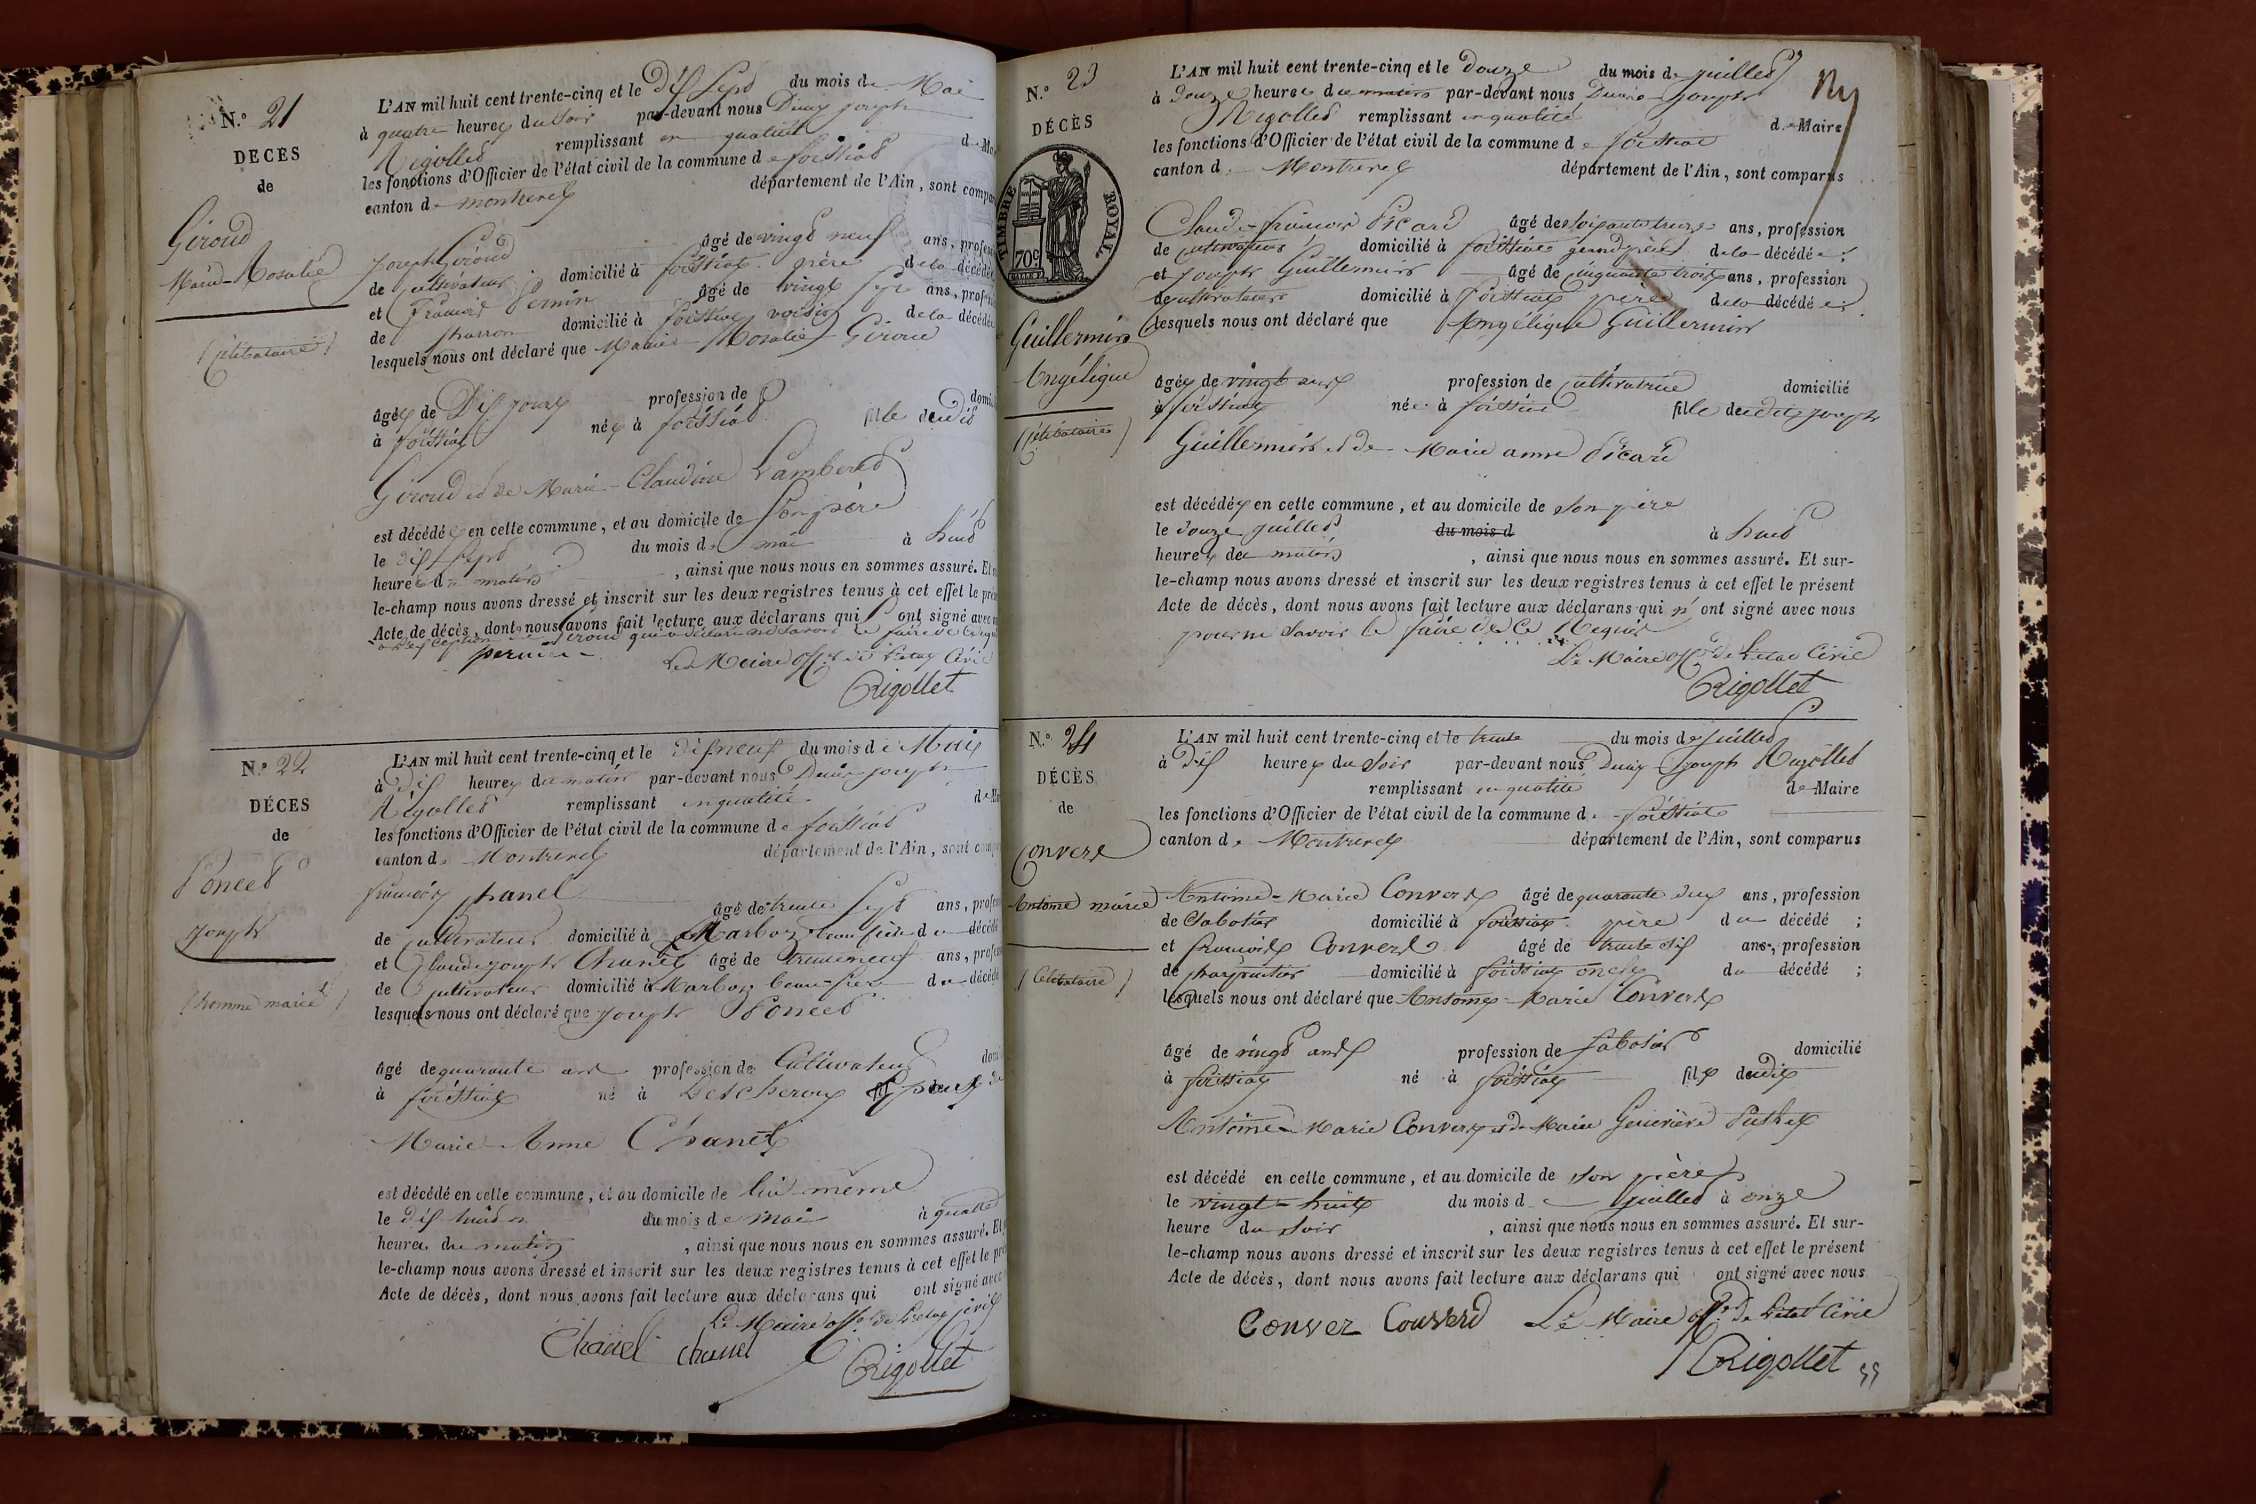 N.º 21
DÉCÈS
de
Giroud
Marie Rosalie
(célibataire)
L'AN mil huit cent trente-cinq et le Dix Sept du mois de Mai
à quatre heures du soir par-devant nous Denis joseph
Rigollet remplissant en qualité de
les fonctions d'Officier de l'état civil de la commune de foissiat
canton de montrevel département de l'Ain, sont
joseph Giroud âgé de vingt neuf ans,
de cultivateur domicilié à foissiat père de la décédée
et François Pernin âgé de vingt sept ans,
de charron domicilié à foissiat voisin de la décédée
lesquels nous ont déclaré que Marie Rosalie Giroud
âgée de Dix jours profession de
à foissiat née à foissiat fille dudit
Giroud et de Marie Claudine Lamberet
est décédée en cette commune, et au domicile de son père
le dix sept du mois de mai à huit
heures du matin, ainsi que nous nous en sommes assuré. Et
le-champ nous avons dressé et inscrit sur les deux registres tenus à cet effet le
Acte de décès, dont nous avons fait lecture aux déclarans qui ont signé avec
Giroud qui a déclaré ne savoir le faire de ce requis
pernin Le Maire off.er de l'etat Civil
Rigollet
N.º 22
DÉCES
de
Poncet
joseph
(homme marié)
L'AN mil huit cent trente-cinq et le dix neuf du mois de Mai
à Dix heures du matin par-devant nous Denis joseph
Rigollet remplissant en qualité de
les fonctions d'Officier de l'état civil de la commune de foissiat
canton de Montrevel département de l'Ain, sont
françois chanel âgé de trente sept ans,
de cultivateur domicilié à Marboz beau frère du décédé
et Claude joseph Chanel âgé de trente neuf ans,
de cultivateur domicilié à Marboz beau frère du décédé
lesquels nous ont déclaré que joseph Poncet
âgé de quarante ans profession de Cultivateur
à foissiat né à Létcheroux époux de
Marie Anne Chanel
est décédé en cette commune, et au domicile de lui même
le dix huit du mois de mai à quatre
heures du matin, ainsi que nous nous en sommes assuré. Et
le-champ nous avons dressé et inscrit sur les deux registres tenus à cet effet le
Acte de décès, dont nous avons fait lecture aux déclarans qui ont signé avec
Le Maire off.er de l'etat Civil
Chanel chanel Rigollet
N.º 23
DÉCÈS
TIMBRE ROYAL
70c
Guillermin
Angélique
(célibataire)
L'AN mil huit cent trente-cinq et le douze du mois de juillet
à douze heures du matin par-devant nous Denis joseph
Rigollet remplissant en qualité de Maire
les fonctions d'Officier de l'état civil de la commune de foissiat
canton de Montrevel département de l'Ain, sont comparus
Claude françois Picard âgé de soixante treize ans, profession
de cultivateur domicilié à foissiat grand père de la décédée;
et joseph Guillermin âgé de cinquante trois ans, profession
de cultivateur domicilié à foissiat père de la décédée;
lesquels nous ont déclaré que Angélique Guillermin
âgée de vingt ans profession de cultivatrice domicilié
à foissiat née à foissiat fille dudit joseph
Guillermin et de Marie anne Picard
est décédée en cette commune, et au domicile de son père
le douze juillet du mois d à huit
heures du matin, ainsi que nous nous en sommes assuré. Et sur-
le-champ nous avons dressé et inscrit sur les deux registres tenus à cet effet le présent
Acte de décès, dont nous avons fait lecture aux déclarans qui n'ont signé avec nous
pour ne savoir le faire de ce Requis
Le Maire off.er de l'etat Civil
Rigollet
N.º 24
DÉCÈS
de
Convert
Antoine marie
(Célibataire)
L'AN mil huit cent trente-cinq et le trente du mois de juillet
à dix heures du soir par-devant nous Denis joseph Rigollet
remplissant en qualité de Maire
les fonctions d'Officier de l'état civil de la commune de foissiat
canton de Montrevel département de l'Ain, sont comparus
Antoine Marie Convert âgé de quarante deux ans, profession
de Sabotier domicilié à foissiat père du décédé;
et françois Convert âgé de trente dix ans, profession
de charpentier domicilié à foissiat oncle du décédé;
lesquels nous ont déclaré que Antoine Marie Convert
âgé de vingt ans profession de Sabotier domicilié
à foissiat né à foissiat fils dudit
Antoine Marie Convert et de Marie Geneviève
est décédé en cette commune, et au domicile de son père
le vingt huit du mois de juillet à onze
heure du soir, ainsi que nous nous en sommes assuré. Et sur-
le-champ nous avons dressé et inscrit sur les deux registres tenus à cet effet le présent
Acte de décès, dont nous avons fait lecture aux déclarans qui ont signé avec nous
Conver Convert Le Maire off.er de l'etat Civil
Rigollet